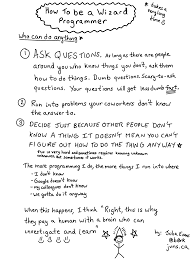 How To be a Wizard
Programmer
who can do anything
* takes a
very long
time :)
① ASK QUESTIONS. As long as there are people
around you who know things you don't, ask them
how to do things. Dumb questions. Scary-to-ask
questions. Your questions will get less dumb fast.
② Run into problems your coworkers don't know
the answer to.
③ DECIDE JUST BECAUSE OTHER PEOPLE DON'T
KNOW A THING IT DOESN'T MEAN YOU CAN'T
FIGURE OUT HOW TO DO THE THING ANYWAY
The more programming I do, the more things I run into where
- I don't know
- Google doesn't know
- my colleagues don't know
- we gotta do it anyway
When this happens, I think "Right, this is why
they pay a human with a brain who can
investigate and learn"
by Julia Evans
@b0rk
jvns.ca